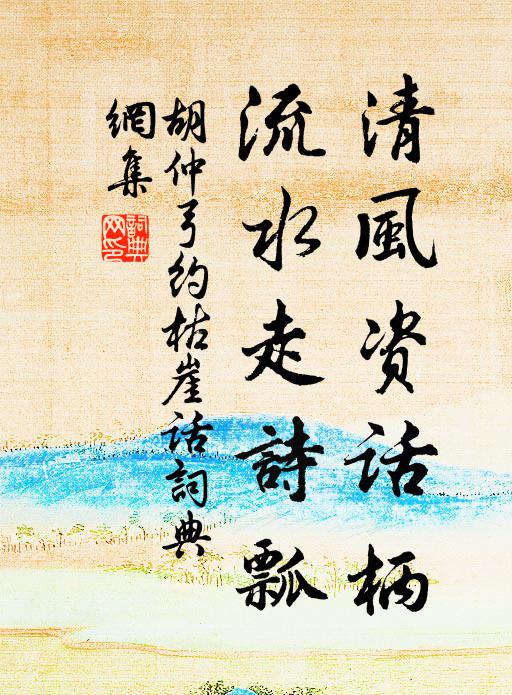 清風資話柄
流水走詩瓢
胡仲弓約枯崖話詞典
網集
詞典网印